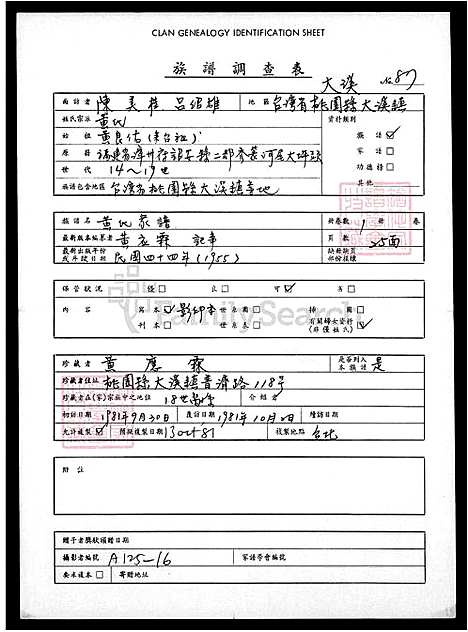 CLAN GENEALOGY IDENTIFICATION SHEET
族譜調查表
大溪 No 87
面訪者 陳美桂 呂紹雄 地區 台灣省桃園縣大溪鎮
姓氏宗派 黃氏 資料類別
始祖 黃良佑(來台祖) 族譜 ☑
原籍 福建省漳州府 家譜 □
世代 14~19世 功德持 □
族譜包含地區 台灣省桃園縣大溪鎮等地 其他
族譜名 黃氏家譜 冊卷數 1 冊 卷
最新版本編纂者 黃應霖 記事 頁數 25面
最新出版年份或年段日期 民國四十四年(1955) 缺冊缺頁部份描樓
保管狀況 優 □ 良 □ 可 ☑ 否 □
內容 寫本 ☑ 影印本 世系圖 □ 插圖 □
刊本 □ 世系表 □ 有關婦女資料(非僅姓氏) ☑
FamilySearch
珍藏者 黃應霖 是否列入本族譜 是
珍藏者住址 桃園縣大溪鎮普濟路118号
珍藏者在(家)宗族中之地位 18世裔孫 介紹者
初訪日期 1981年9月30日 複訪日期 1981年10月2日 續訪日期
允許複製 ☑ 預擬複製日期 13 Oct 81 複製地點 台北
附註
贈予者獎狀頒贈日期
攝影者編號 A125-16 家譜學會編號
要求複本 □ 寄贈地址